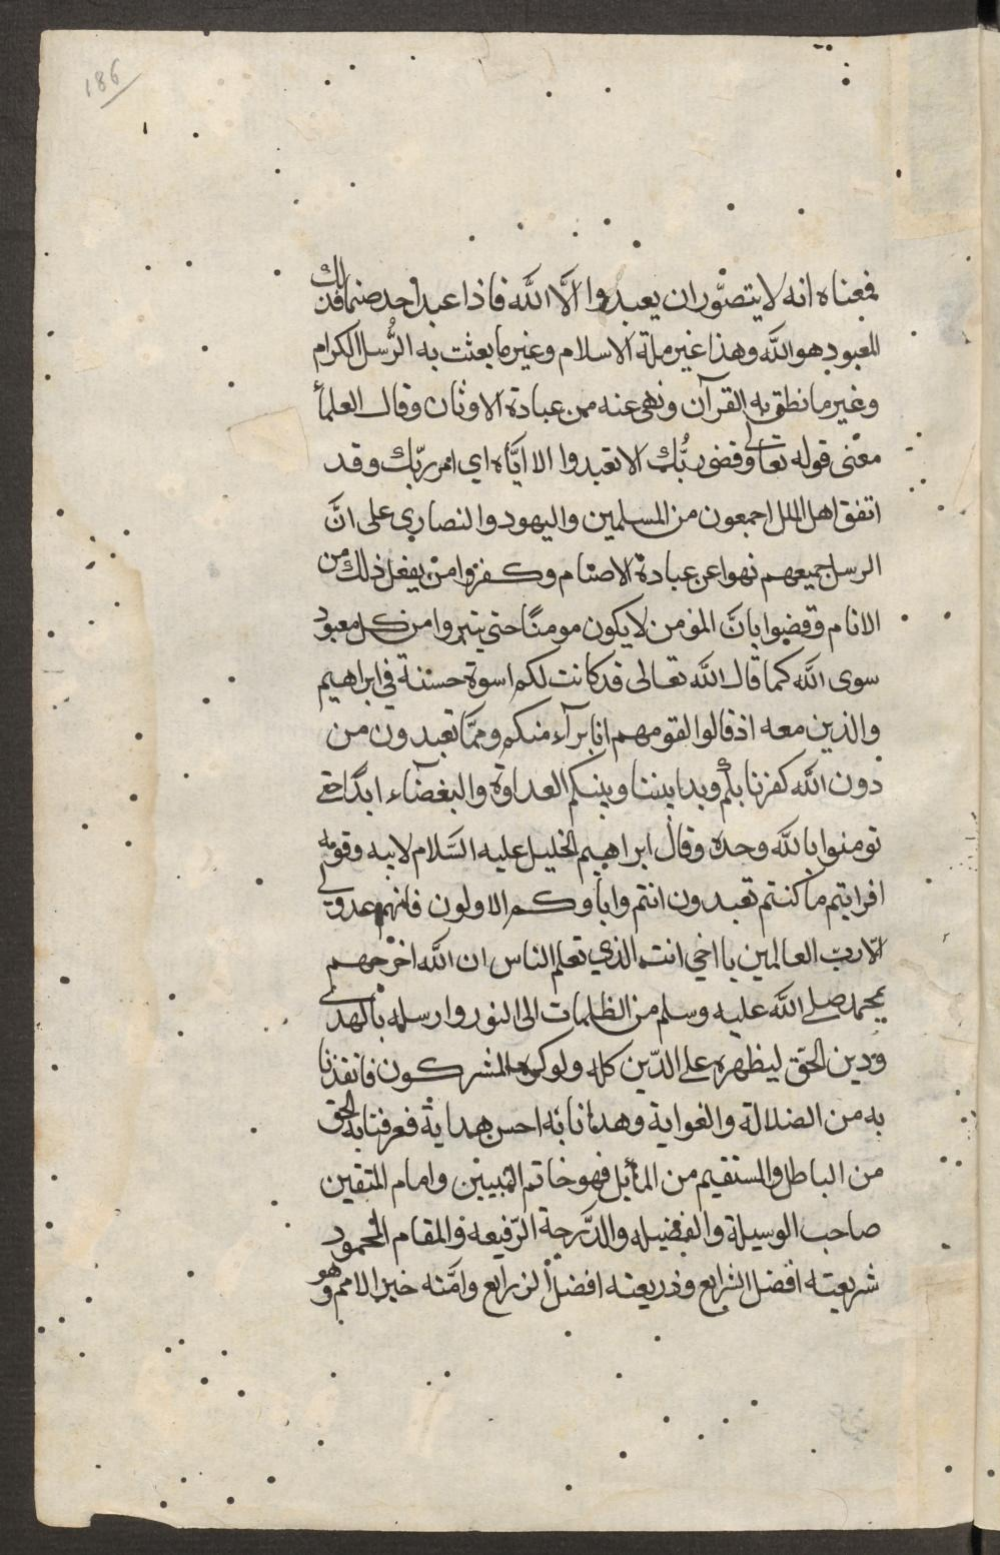 186
فمعناه انه لا يتصوّر ان يعبدوا الّا الله فاذا عبد احد صنما فذلك
المعبود هو الله وهذا غير ملة الاسلام وغير ما بعثت به الرُّسل الكرام
وغير ما نطق به القرآن ونهى عنه من عبادة الاوثان وقال العلمأ
معنى قوله تعالى وقضى ربُّك الا تعبدوا الا ايَّاه اي امر ربّك وقد
اتفق اهل الملل اجمعون من المسلمين واليهود والنصارى على انَّ
الرسل جميعهم نهوا عن عبادة الاصنام وكفروا من يفعل ذلك من
الانام وقضوا بانَّ المؤمن لا يكون مومنًا حتى يتبروا من كل معبود
سوى الله كما قال الله تعالى قد كانت لكم اسوة حسنة في ابراهيم
والذين معه اذ قالوا لقومهم انا برآء منكم وممَّا تعبدون من
دون الله كفرنا بكم وبدا بيننا وبينكم العداوة والبغضآء ابدًا حتى
تومنوا بالله وحده وقال ابراهيم الخليل عليه السَلام لابيه وقومه
افرايتم ما كنتم تعبدون انتم واباوكم الاولون فانهم عدو لي
الّا ربّ العالمين يا اخي انت الذي تعلم الناس ان الله اخرجهم
بمحمد صلى الله عليه وسلم من الظلمات الى النور وارسله بالهدى
ودين الحقّ ليظهره على الدّين كله ولو كره المشركون فانقذنا
به من الضلالة والغواية وهدانا به احسن هداية فعرفنا به الحق
من الباطل والمستقيم من المائل فهو خاتم النبيين وامام المتقين
صاحب الوسيلة والفضيله والدّرجة الرّفيعه والمقام المحمود
شريعته افضل الشرايع وذريعته افضل الذرايع وامَّته خير الامم وهو